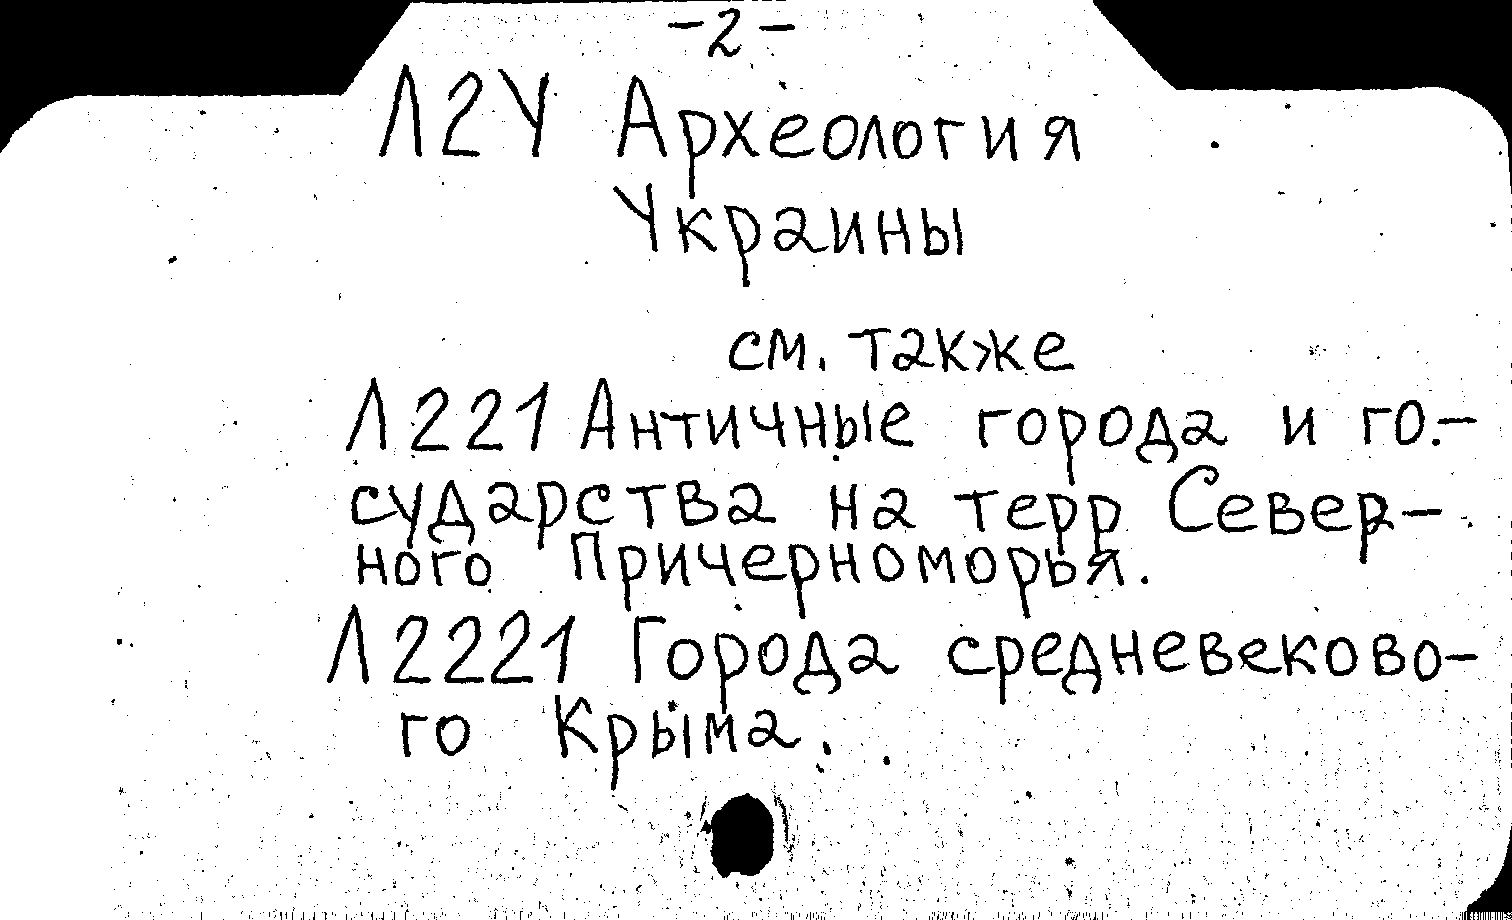 -2-
Л2У Археология
Украины
см. также
Л221 Античные города и го.-
сударства на терр Север-
ного Причерноморья.
Л2221 Города средневеково-
го Крыма.